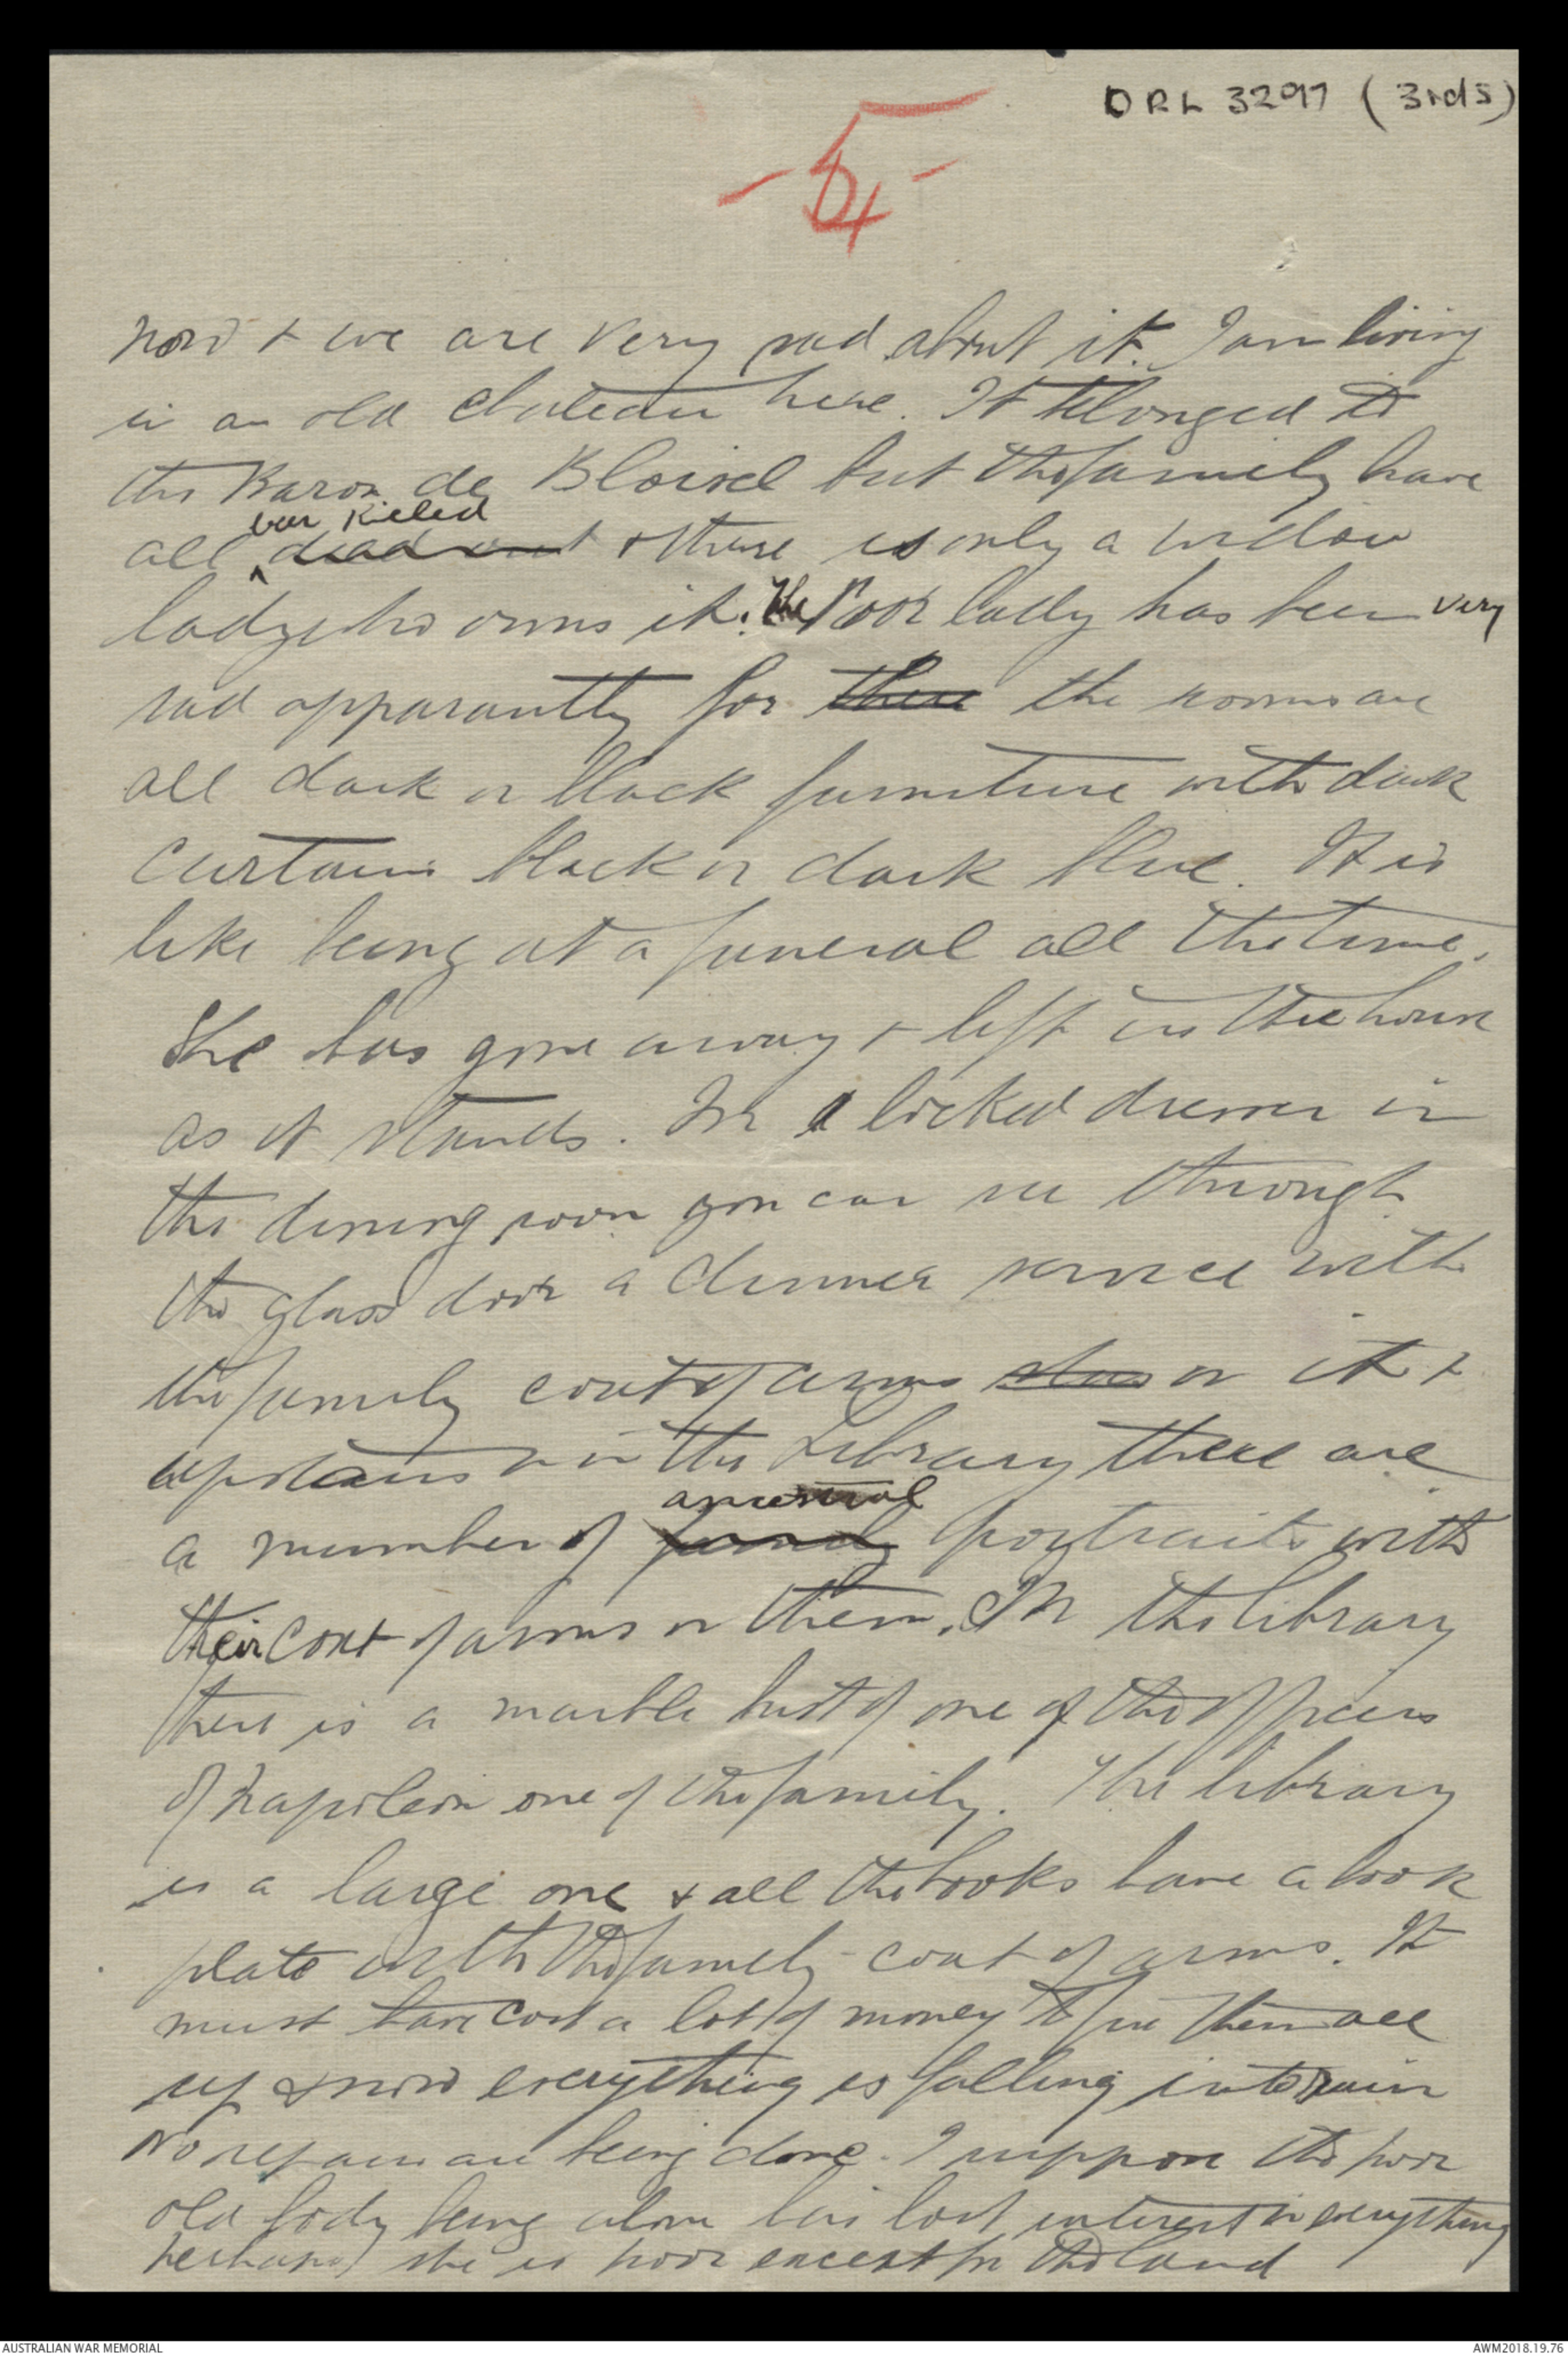 DRL 3297 (3rd S)
- 5 -
now + we are very sad about it. I am living
in an old chateau here. It belonged to
the Baron de Bloisel but the family have
been killed
all dead out + there is only a widow
lady who owns it. The Poor lady has been very
sad apparantly for there the rooms are
all dark or black furniture with dark
curtains black or dark blue. It is
like being at a funeral all the time.
She has gone away + left us the house
as it stands. In a locked dresser in
the dining room you can see through
the glass door a dinner service with
the family coat of arms on it +
upstairs + in the Library there are
ancestral
a number of family portraits with
their coat of arms on them. In the library
there is a marble bust of one of the officers
of Napoleon one of the family. The library
is a large one + all the books have a book
plate with the family coat of arms. It
must have cost a lot of money to fix them all
up & now everything is falling into ruin
No repairs are being done. I suppose the poor
old body being alone has lost interest in everything
Perhaps she is poor except for the land
AUSTRALIAN WAR MEMORIAL
AWM2018.19.76